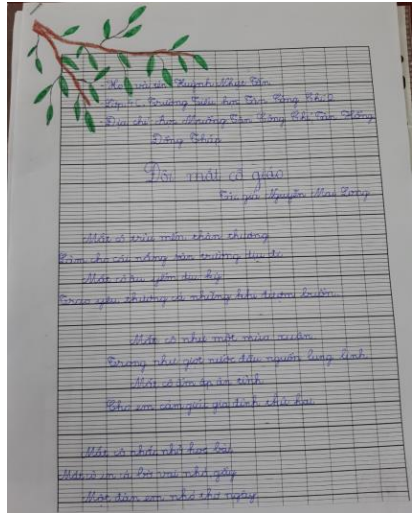 - Họ và tên: Huỳnh Nhật Tấn
- Lớp 5C, Trường Tiểu học Tân Công Chí 2
- Địa chỉ: Tân Công Chí, Tân Hồng
Đồng Tháp
Đôi mắt cô giáo
Tác giả: Nguyễn Mai Long
Mắt cô trìu mến thân thương
Làm cho cái nắng sân trường dịu đi
Mắt cô
Trao yêu thương cả những khi đượm buồn
Mắt cô như một mùa xuân
Trong như giọt nước đầu nguồn lung linh
Mắt cô ấm áp ân tình
Cho em cảm giác gia đình thứ hai
Mắt cô nhắc nhở học bài
Một đàn em nhỏ thơ ngây